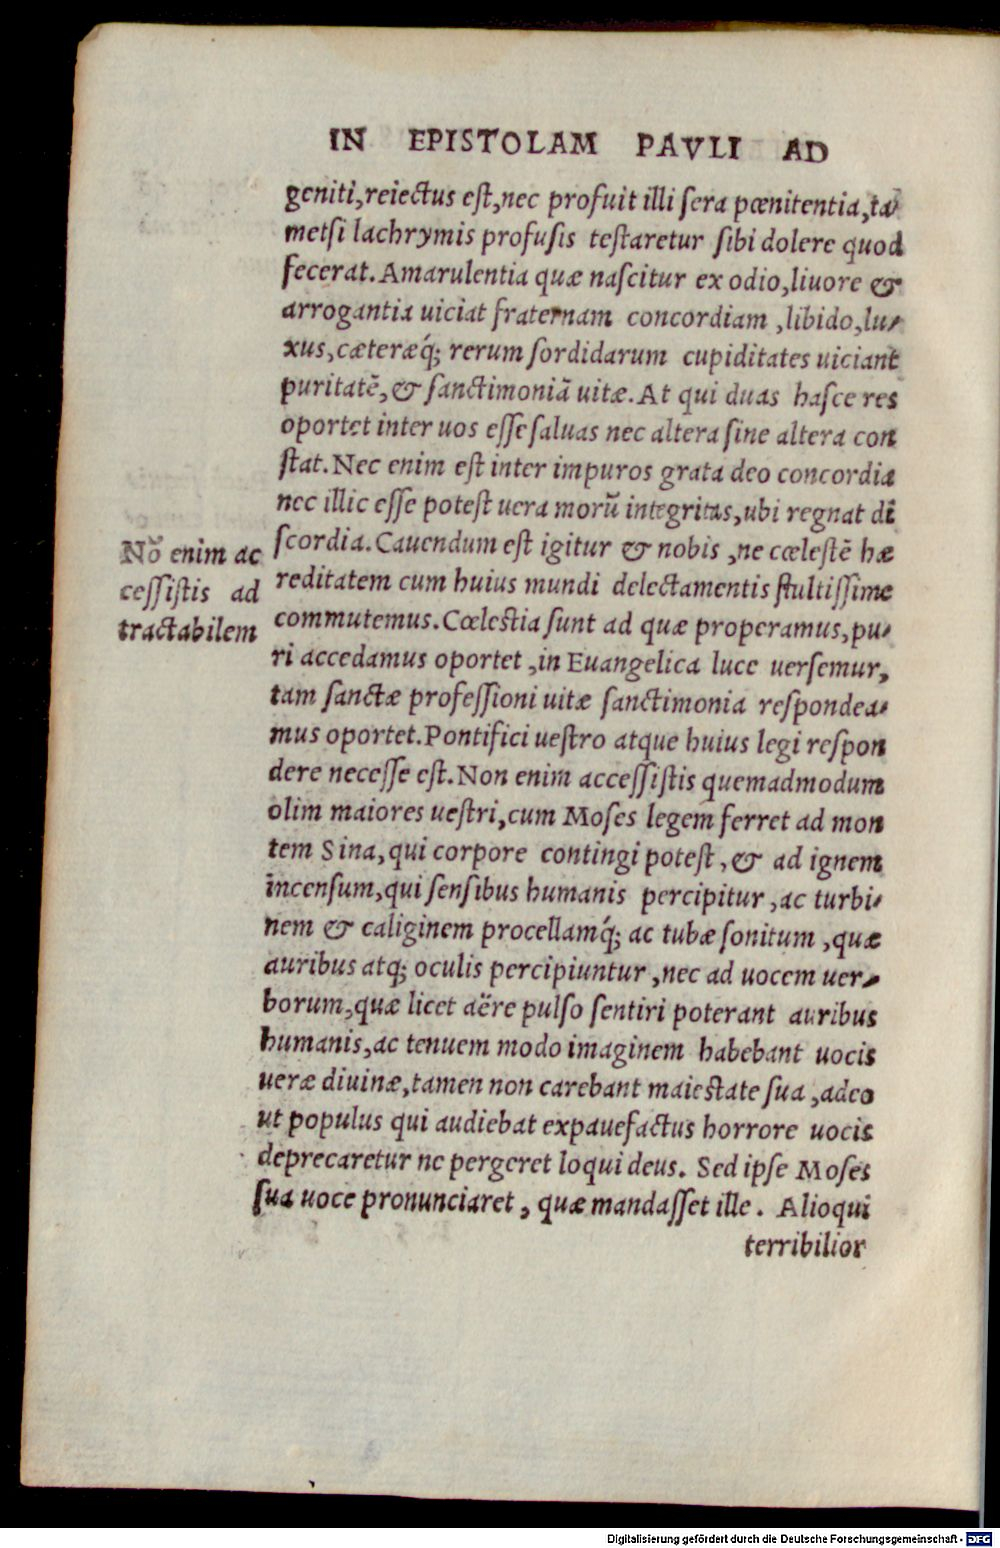 IN EPISTOLAM PAVLI AD
geniti,reiectus est,nec profuit illi sera pœnitentia,ta⸗
metsi lachrymis profusis testaretur sibi dolere quod
fecerat.Amarulentia quæ nascitur ex odio,liuore &
arrogantia uiciat fraternam concordiam ,libido,lu⸗
xus,cæteræq́; rerum sordidarum cupiditates uiciant
puritatẽ,& sanctimoniã uitæ.At qui duas hasce res
oportet inter uos esse saluas nec altera sine altera con
stat.Nec enim est inter impuros grata deo concordia
nec illic esse potest uera morũ integritas,ubi regnat di
scordia.Cauendum est igitur & nobis ,ne cœlestẽ hæ
reditatem cum huius mundi delectamentis stultissime
commutemus.Cœlestia sunt ad quæ properamus,pu⸗
ri accedamus oportet ,in Euangelica luce uersemur,
tam sanctæ professioni uitæ sanctimonia respondea⸗
mus oportet.Pontifici uestro atque huius legi respon
dere necesse est.Non enim accessistis quemadmodum
olim maiores uestri,cum Moses legem ferret ad mon
tem Sina,qui corpore contingi potest,& ad ignem
incensum,qui sensibus humanis percipitur ,ac turbi⸗
nem & caliginem procellamq́; ac tubæ sonitum ,quæ
auribus atq; oculis percipiuntur ,nec ad uocem uer⸗
borum,quæ licet aëre pulso sentiri poterant auribus
humanis,ac tenuem modo imaginem habebant uocis
ueræ diuinæ,tamen non carebant maiestate sua ,adeo
ut populus qui audiebat expauefactus horrore uocis
deprecaretur ne pergeret loqui deus. Sed ipse Moses
sua uoce pronunciaret , quæ mandasset ille . Alioqui
terribilior
Nõ enim ac
cessistis ad
tractabilem
Digitalisierung gefördert durch die Deutsche Forschungsgemeinschaft - DFG